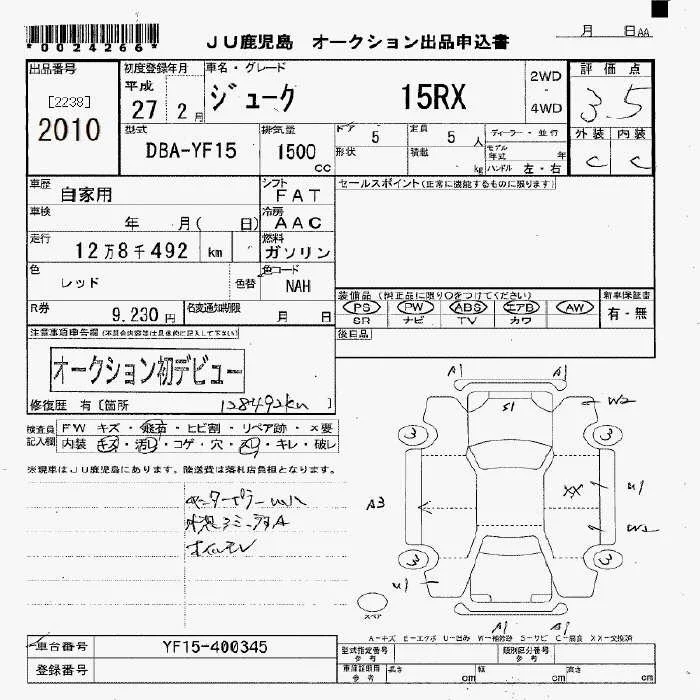 *0024266*
JU鹿児島 オークション出品申込書
月 日AA
出品番号
[2238]
2010
初度登録年月
平成
27 2月
車名・グレード
ジューク 15RX
2WD
4WD
評価点
3.5
外装 内装
C C
型式
DBA-YF15
排気量
1500
cc
ドア
5
定員
5人
形状
積載
kg
ディーラー・並行
モデル年式 年
ハンドル 左・右
車歴
自家用
シフト
FAT
車検
年 月( 日)
冷房
AAC
走行
12万8千492 km
燃料
ガソリン
色
レッド
色替
色コード
NAH
R券
9.230円
名変通知期限
月 日
セールスポイント(正常に機能するものに限ります)
装備品(純正品に限り○をつけてください)
PS PW ABS エアB AW
SR ナビ TV カワ
新車保証書
有・無
後日品
注意事項申告欄
オークション初デビュー
修復歴 有〔箇所 128492km 〕
検査員
記入欄
FW キズ・飛石・ヒビ割・リペア跡・×要
内装 キズ・汚レ・コゲ・穴・スレ・キレ・破レ
※現車はJU鹿児島にあります。陸送費は落札店負担となります。
A1 A1
S1
W2
3 3
A3
XX
U1
W2
3 3
U1
スペア
A1 A1
A-キズ E-エクボ U-凹み W-補修跡 S-サビ C-腐食 XX-交換済
車台番号
YF15-400345
登録番号
型式指定番号
参考
類別区分番号
参考
車庫証明用
参考
長さ cm
幅 cm
高さ cm